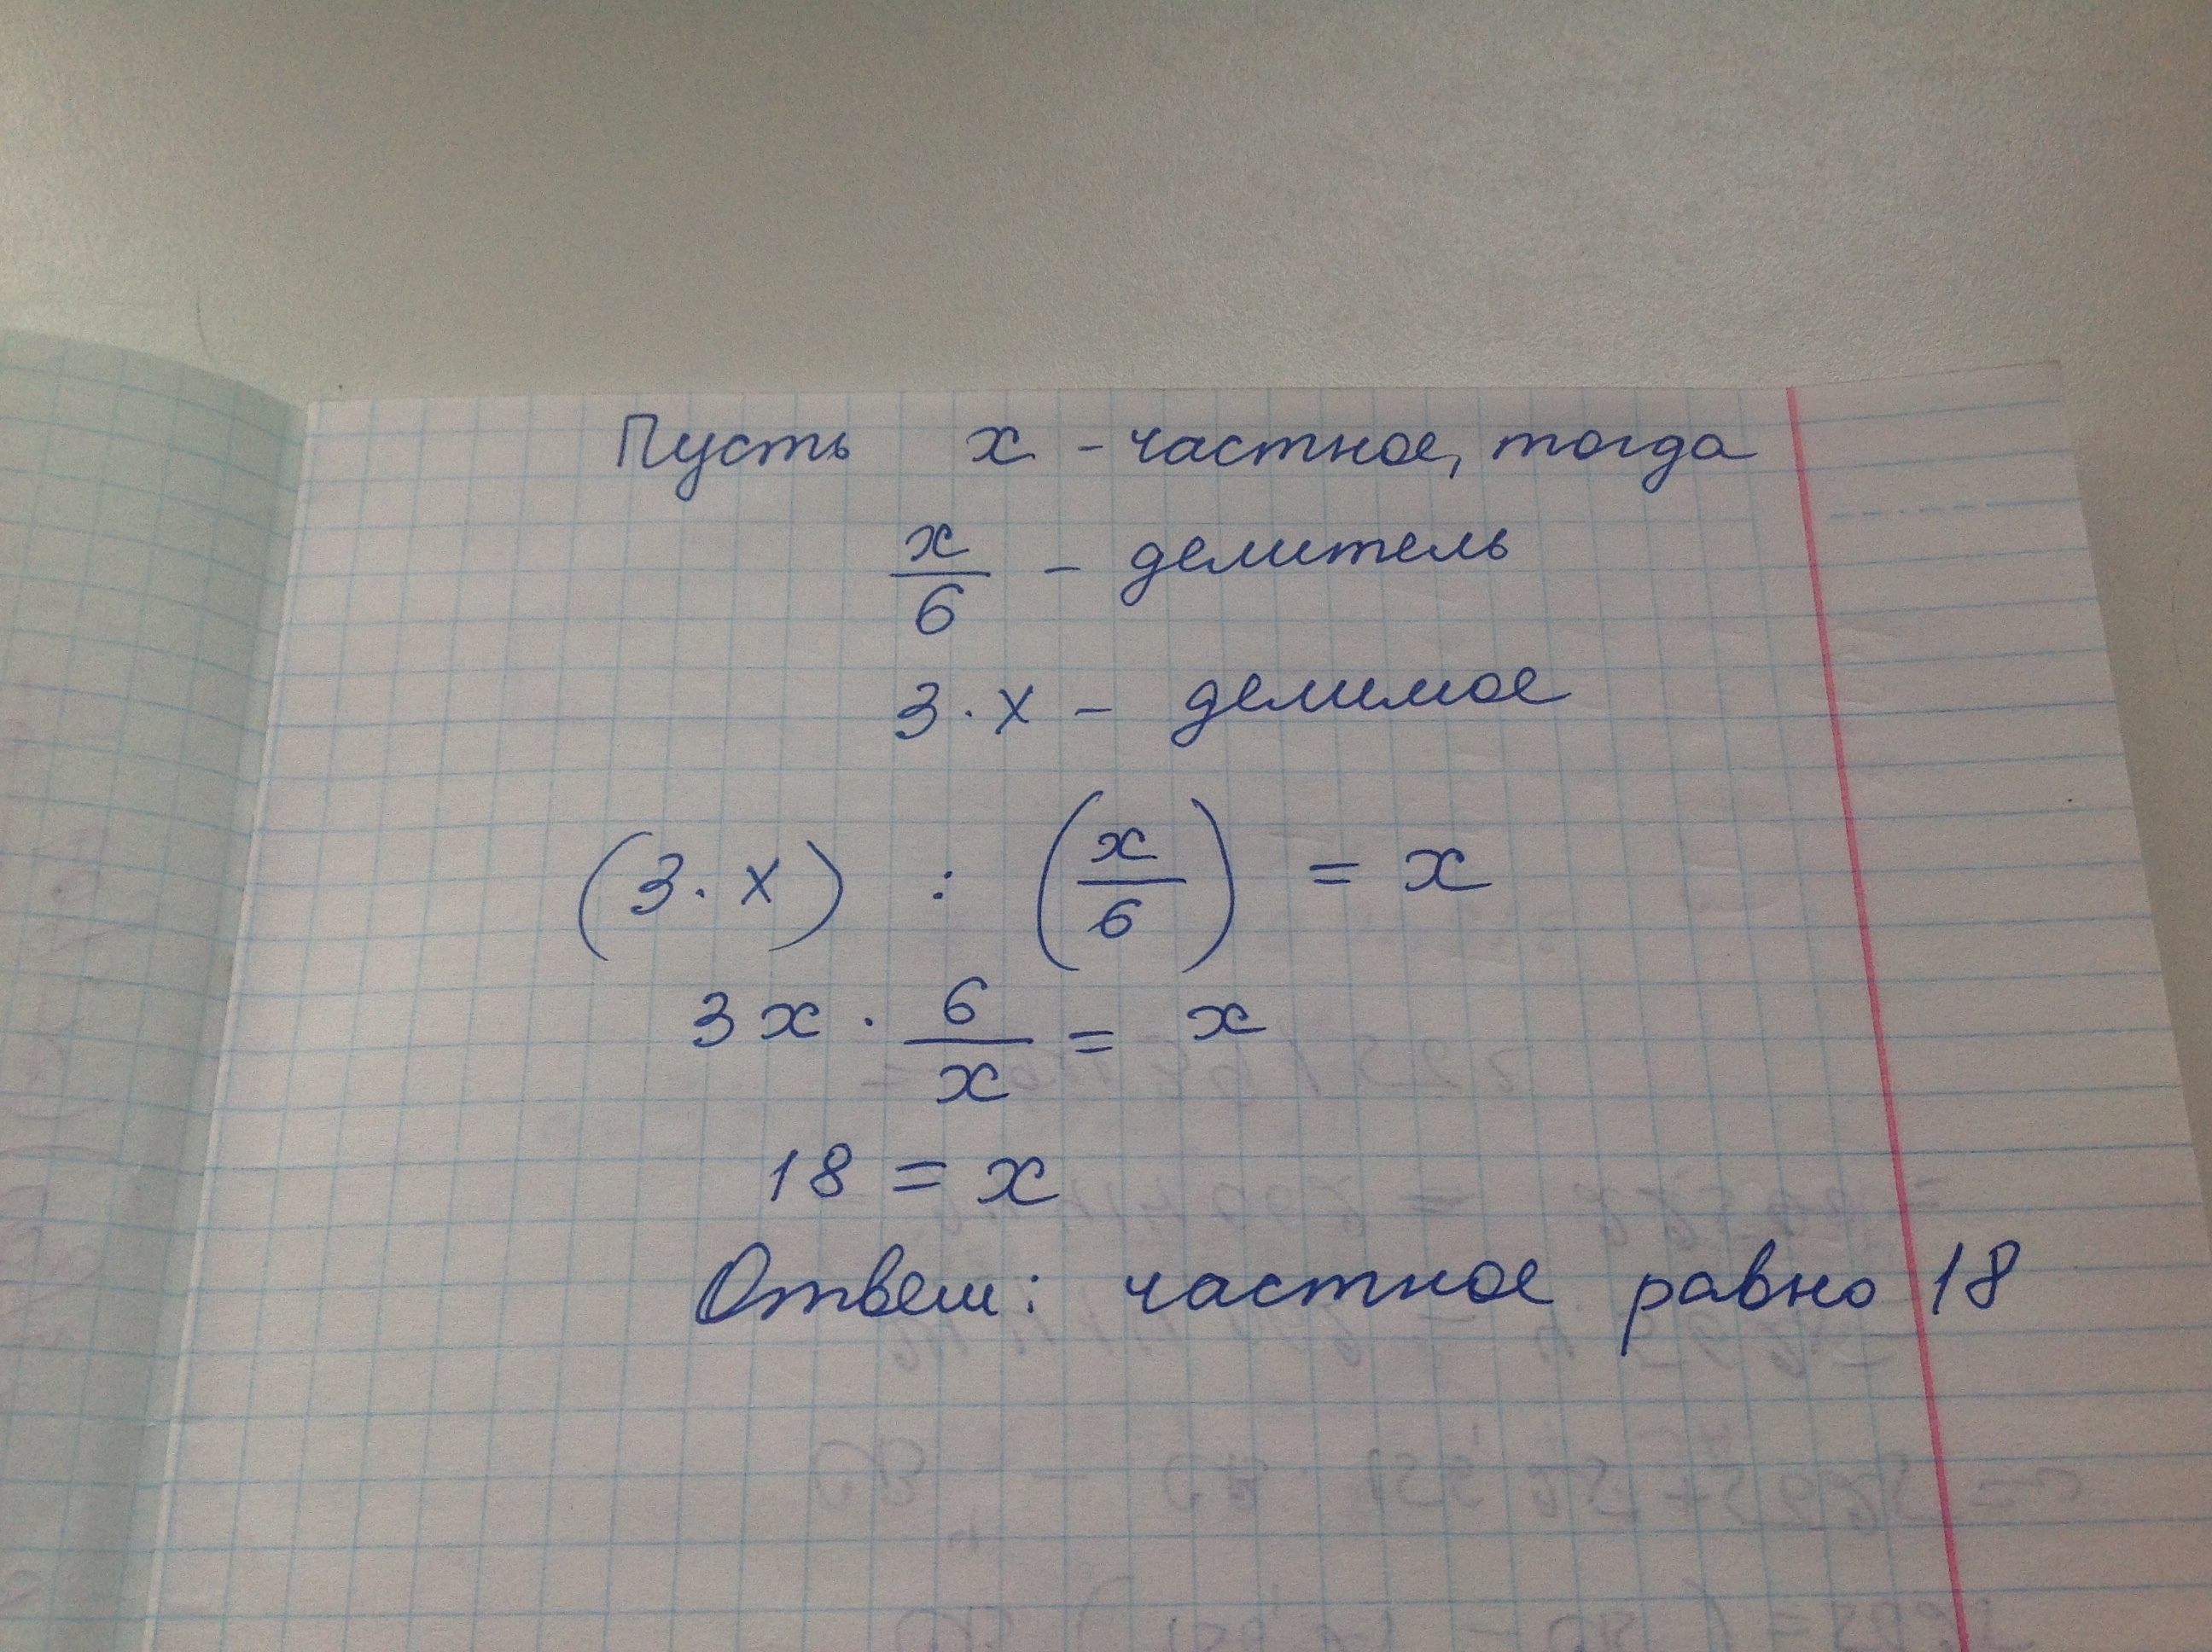 Пусть x - частное, тогда
x/6 - делитель
3·x - делимое
(3·x) : (x/6) = x
3x · 6/x = x
18 = x
Ответ: частное равно 18